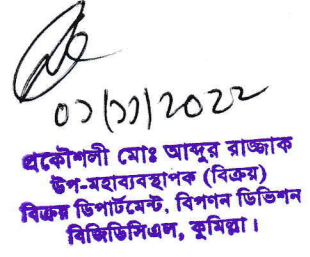 ০১/১১/2022
প্রকৌশলী মোঃ আব্দুর রাজ্জাক
উপ-মহাব্যবস্থাপক (বিক্রয়)
বিক্রয় ডিপার্টমেন্ট, বিপণন ডিভিশন
বিজিডিসিএল, কুমিল্লা।